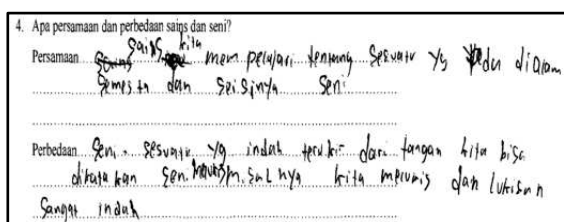 4. Apa persamaan dan perbedaan sains dan seni?
Persamaan sains kita mempelajari tentang sesuatu yg ada di alam
semesta dan seisinya seni
Perbedaan seni = sesuatu yg indah terukir dari tangan kita bisa
dikatakan seni misalnya kita melukis dan lukisan
sangat indah